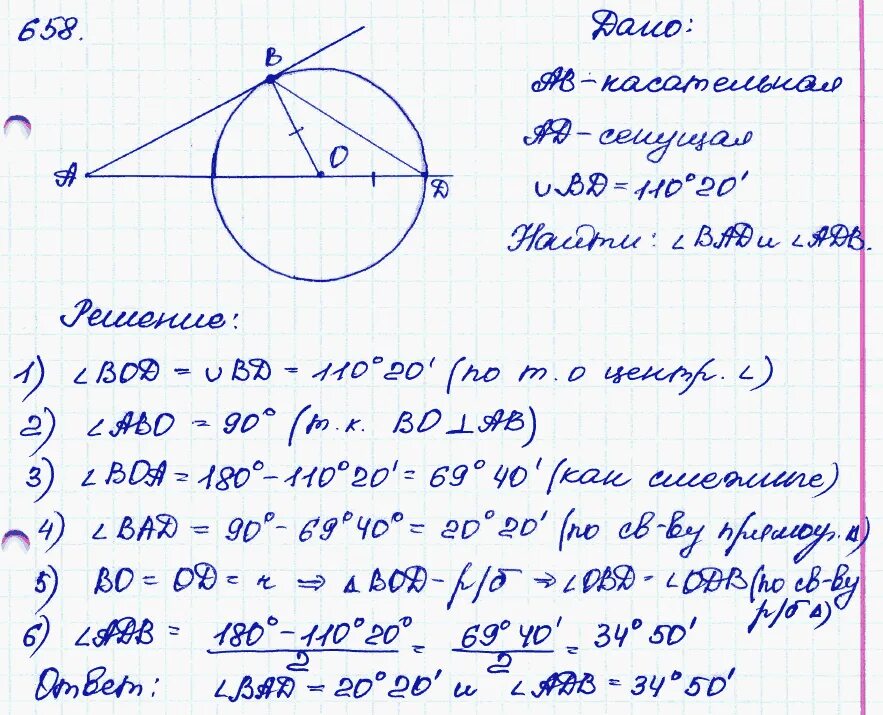 658.
B
A
O
D
Дано:
AB - касательная
AD - секущая
∪BD = 110°20'
Найти: ∠BAD и ∠ADB.
Решение:
1) ∠BOD = ∪BD = 110°20' (по т. о центр. ∠)
2) ∠ABO = 90° (т.к. BO ⊥ AB)
3) ∠BOA = 180° - 110°20' = 69°40' (как смежные)
4) ∠BAD = 90° - 69°40° = 20°20' (по св-ву прямоуг. Δ)
5) BO = OD = r ⇒ ΔBOD - р/б ⇒ ∠OBD = ∠ODB (по св-ву р/б Δ)
6) ∠ADB = (180° - 110°20°)/2 = 69°40'/2 = 34°50'
Ответ: ∠BAD = 20°20' и ∠ADB = 34°50'